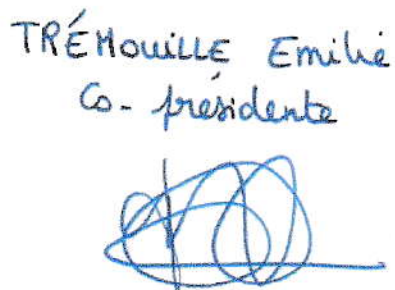 TRÉMOUILLE Emilie
Co-présidente